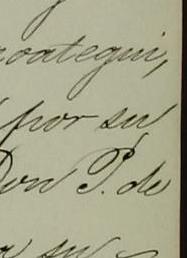 oategui,
por su
Don P. de
su